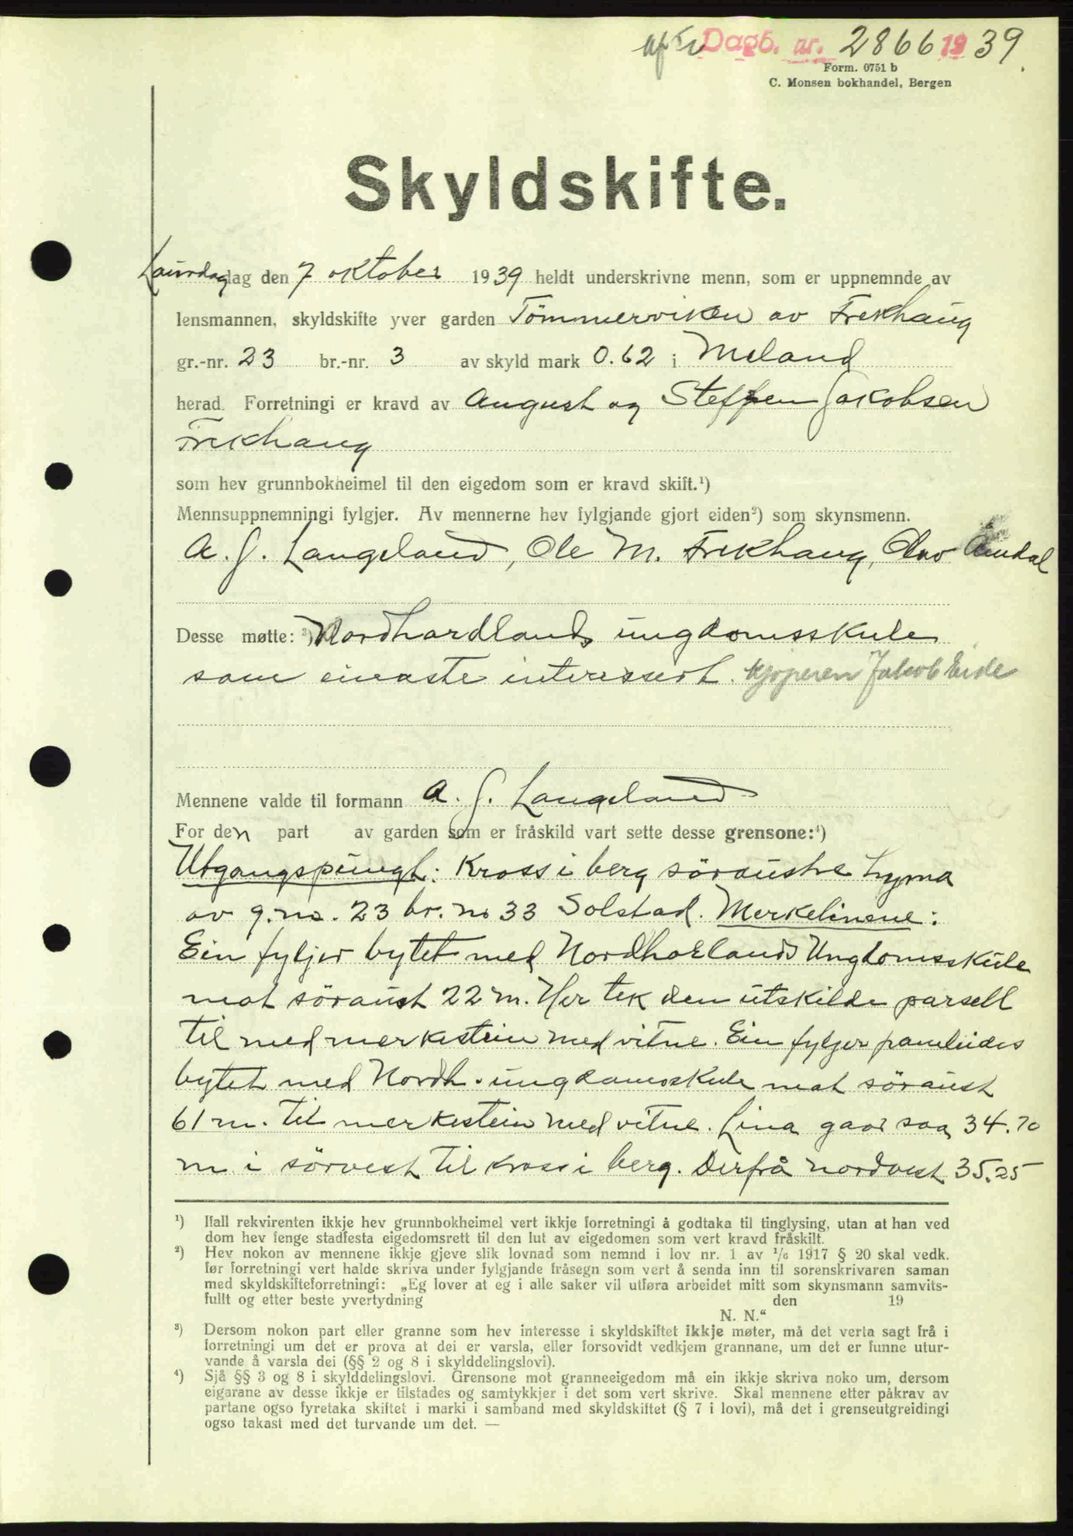 Dagb. nr. 2866 1939.
Form. 0751 b
C. Monsen bokhandel, Bergen
Skyldskifte.
Laurdag dag den 7 oktober 1939 heldt underskrivne menn, som er uppnemnde av
lensmannen, skyldskifte yver garden Tömmerviken av Frekhaug
gr.-nr. 23 br.-nr. 3 av skyld mark 0.62 i Meland
herad. Forretningi er kravd av August og Steffen Jakobsen
Frekhaug
som hev grunnbokheimel til den eigedom som er kravd skift.¹)
Mennsuppnemningi fylgjer. Av mennerne hev fylgjande gjort eiden²) som skynsmenn.
A. J. Langeland, Ole M. Frekhaug, Olav Amdal
Desse møtte: ³) Nordhordlands ungdomsskule
som einaste interessert. kjøperen Jakob Eide
Mennene valde til formann A. J. Langeland
For den part av garden som er fråskild vart sette desse grensone:⁴)
Utgangspungt: Kross i berg söraustre hyrna
av g.no. 23 br. no 33 Solstad. Merkelinene:
Ein fylgjer bytet med Nordhordlands Ungdomsskule
mot söraust 22 m. Her tek den utskilde parsell
til med merkestein med vitne. Ein fylgjer framleides
bytet med Nordh. ungdomsskule mot söraust
61 m. til merkestein med vitne. Lina gaar saa 34.70
m i sörvest til kross i berg. Derfrå nordvest 35.25
¹) Hall rekvirenten ikkje hev grunnbokheimel vert ikkje forretningi å godtaka til tinglysing, utan at han ved
dom hev fenge stadfesta eigedomsrett til den lut av eigedomen som vert kravd fråskilt.
²) Hev nokon av mennene ikkje gjeve slik lovnad som nemnd i lov nr. 1 av ¹/₆ 1917 § 20 skal vedk.
før forretningi vert halde skriva under fylgjande fråsegn som vert å senda inn til sorenskrivaren saman
med skyldskifteforretningi: „Eg lover at eg i alle saker vil utføra arbeidet mitt som skynsmann samvits-
fullt og etter beste yvertydning den 19
N. N.“
³) Dersom nokon part eller granne som hev interesse i skyldskiftet ikkje møter, må det verta sagt frå i
forretningi um det er prova at dei er varsla, eller forsovidt vedkjem grannane, um det er funne utur-
vande å varsla dei (§§ 2 og 8 i skylddelingslovi).
⁴) Sjå §§ 3 og 8 i skylddelingslovi. Grensone mot granneeigedom må ein ikkje skriva noko um, dersom
eigarane av desse ikkje er tilstades og samtykkjer i det som vert skrive. Skal mennene etter påkrav av
partane ogso fyretaka skiftet i marki i samband med skyldskiftet (§ 7 i lovi), må det i grenseutgreidingi
ogso takast med det turvande um det. —